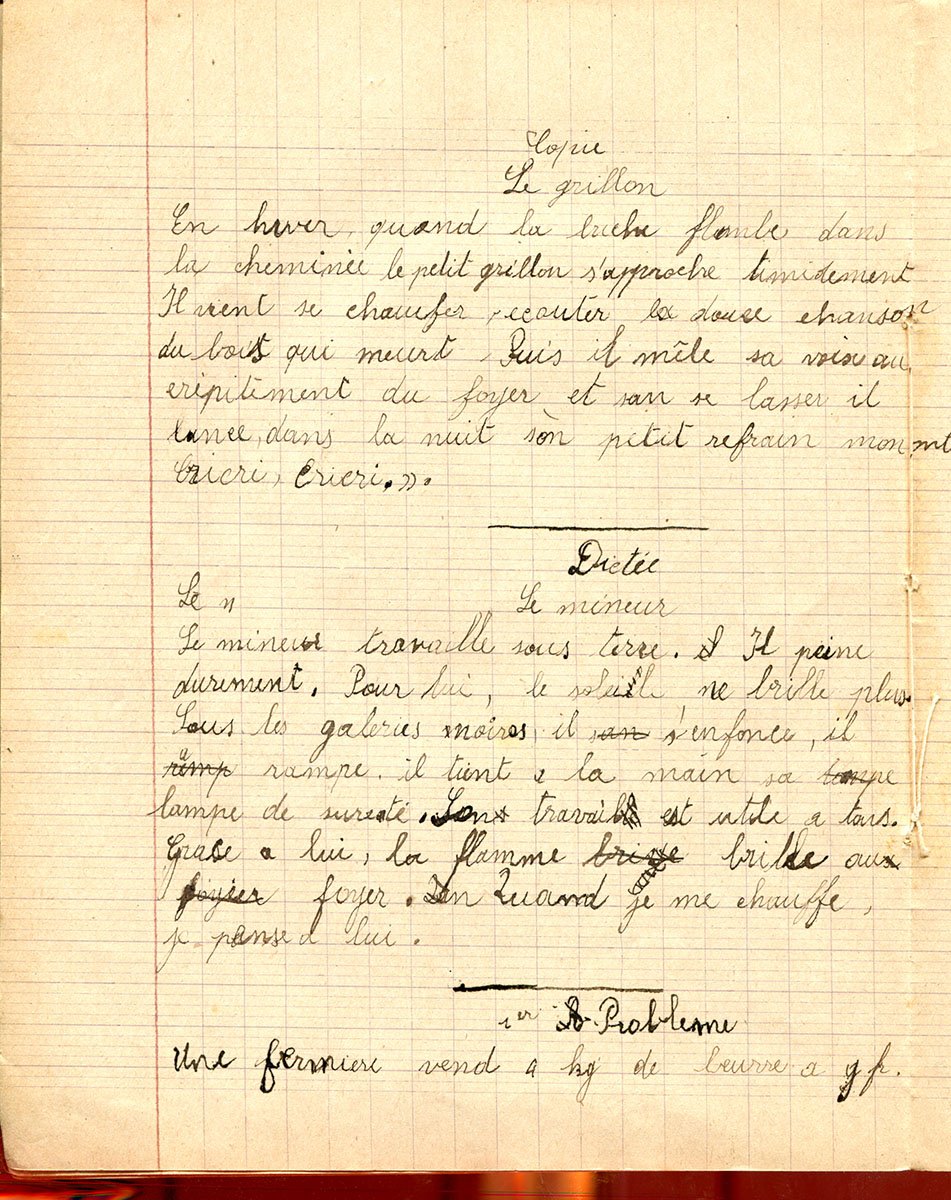 Copie
Le grillon
En hiver, quand la buche flambe dans
la cheminée le petit grillon s'approche timidement
Il vient se chaufer, ecouter la douce chanson
du bois qui meurt. Puis il mêle sa voix au
crépitement du foyer et san se lasser il
lance, dans la nuit son petit refrain
Cricri, Cricri. ».
Dictée
Le "
Le mineur
Le mineur travaille sous terre. Il peine
durement. Pour lui, le soleil ne brille plus.
Sous les galeries noires, il s'enfonce, il
rampe. il tient a la main sa
lampe de sureté. Son travail est utile a tous.
Grace a lui, la flamme brille aux
foyer. Quand je me chauffe,
je panse a lui.
1er Probleme
Une fermiere vend 9 kg de beurre a 9 fr.